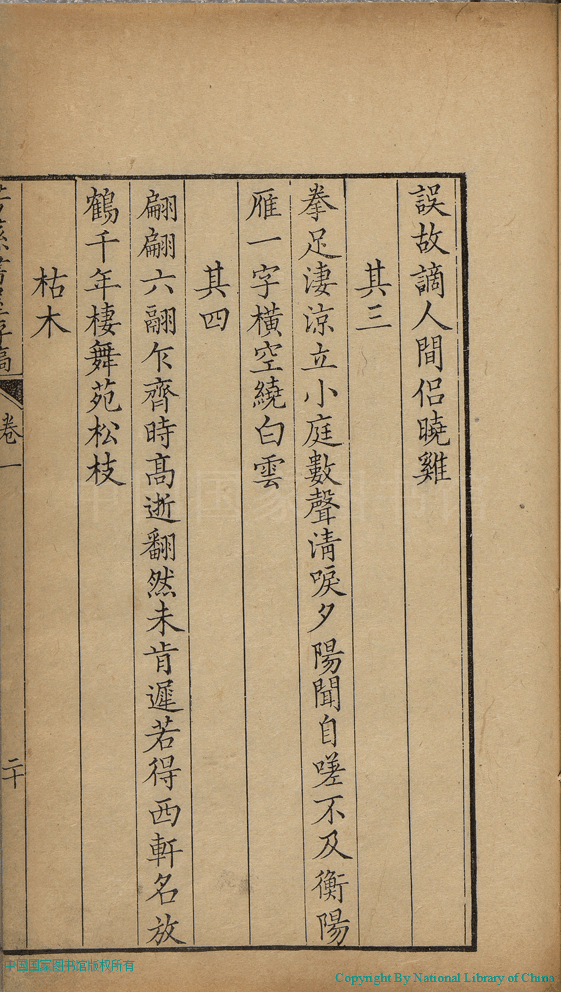 誤故謫人間侣曉雞
其三
拳足淒涼立小庭數聲清唳夕陽聞自嗟不及衡陽
雁一字橫空繞白雲
其四
翩翩六翮乍齊時高逝翻然未肯遲若得西軒名放
鶴千年棲舞苑松枝
枯木
卷一
二十
中国国家图书馆版权所有
Copyright By National Library of China